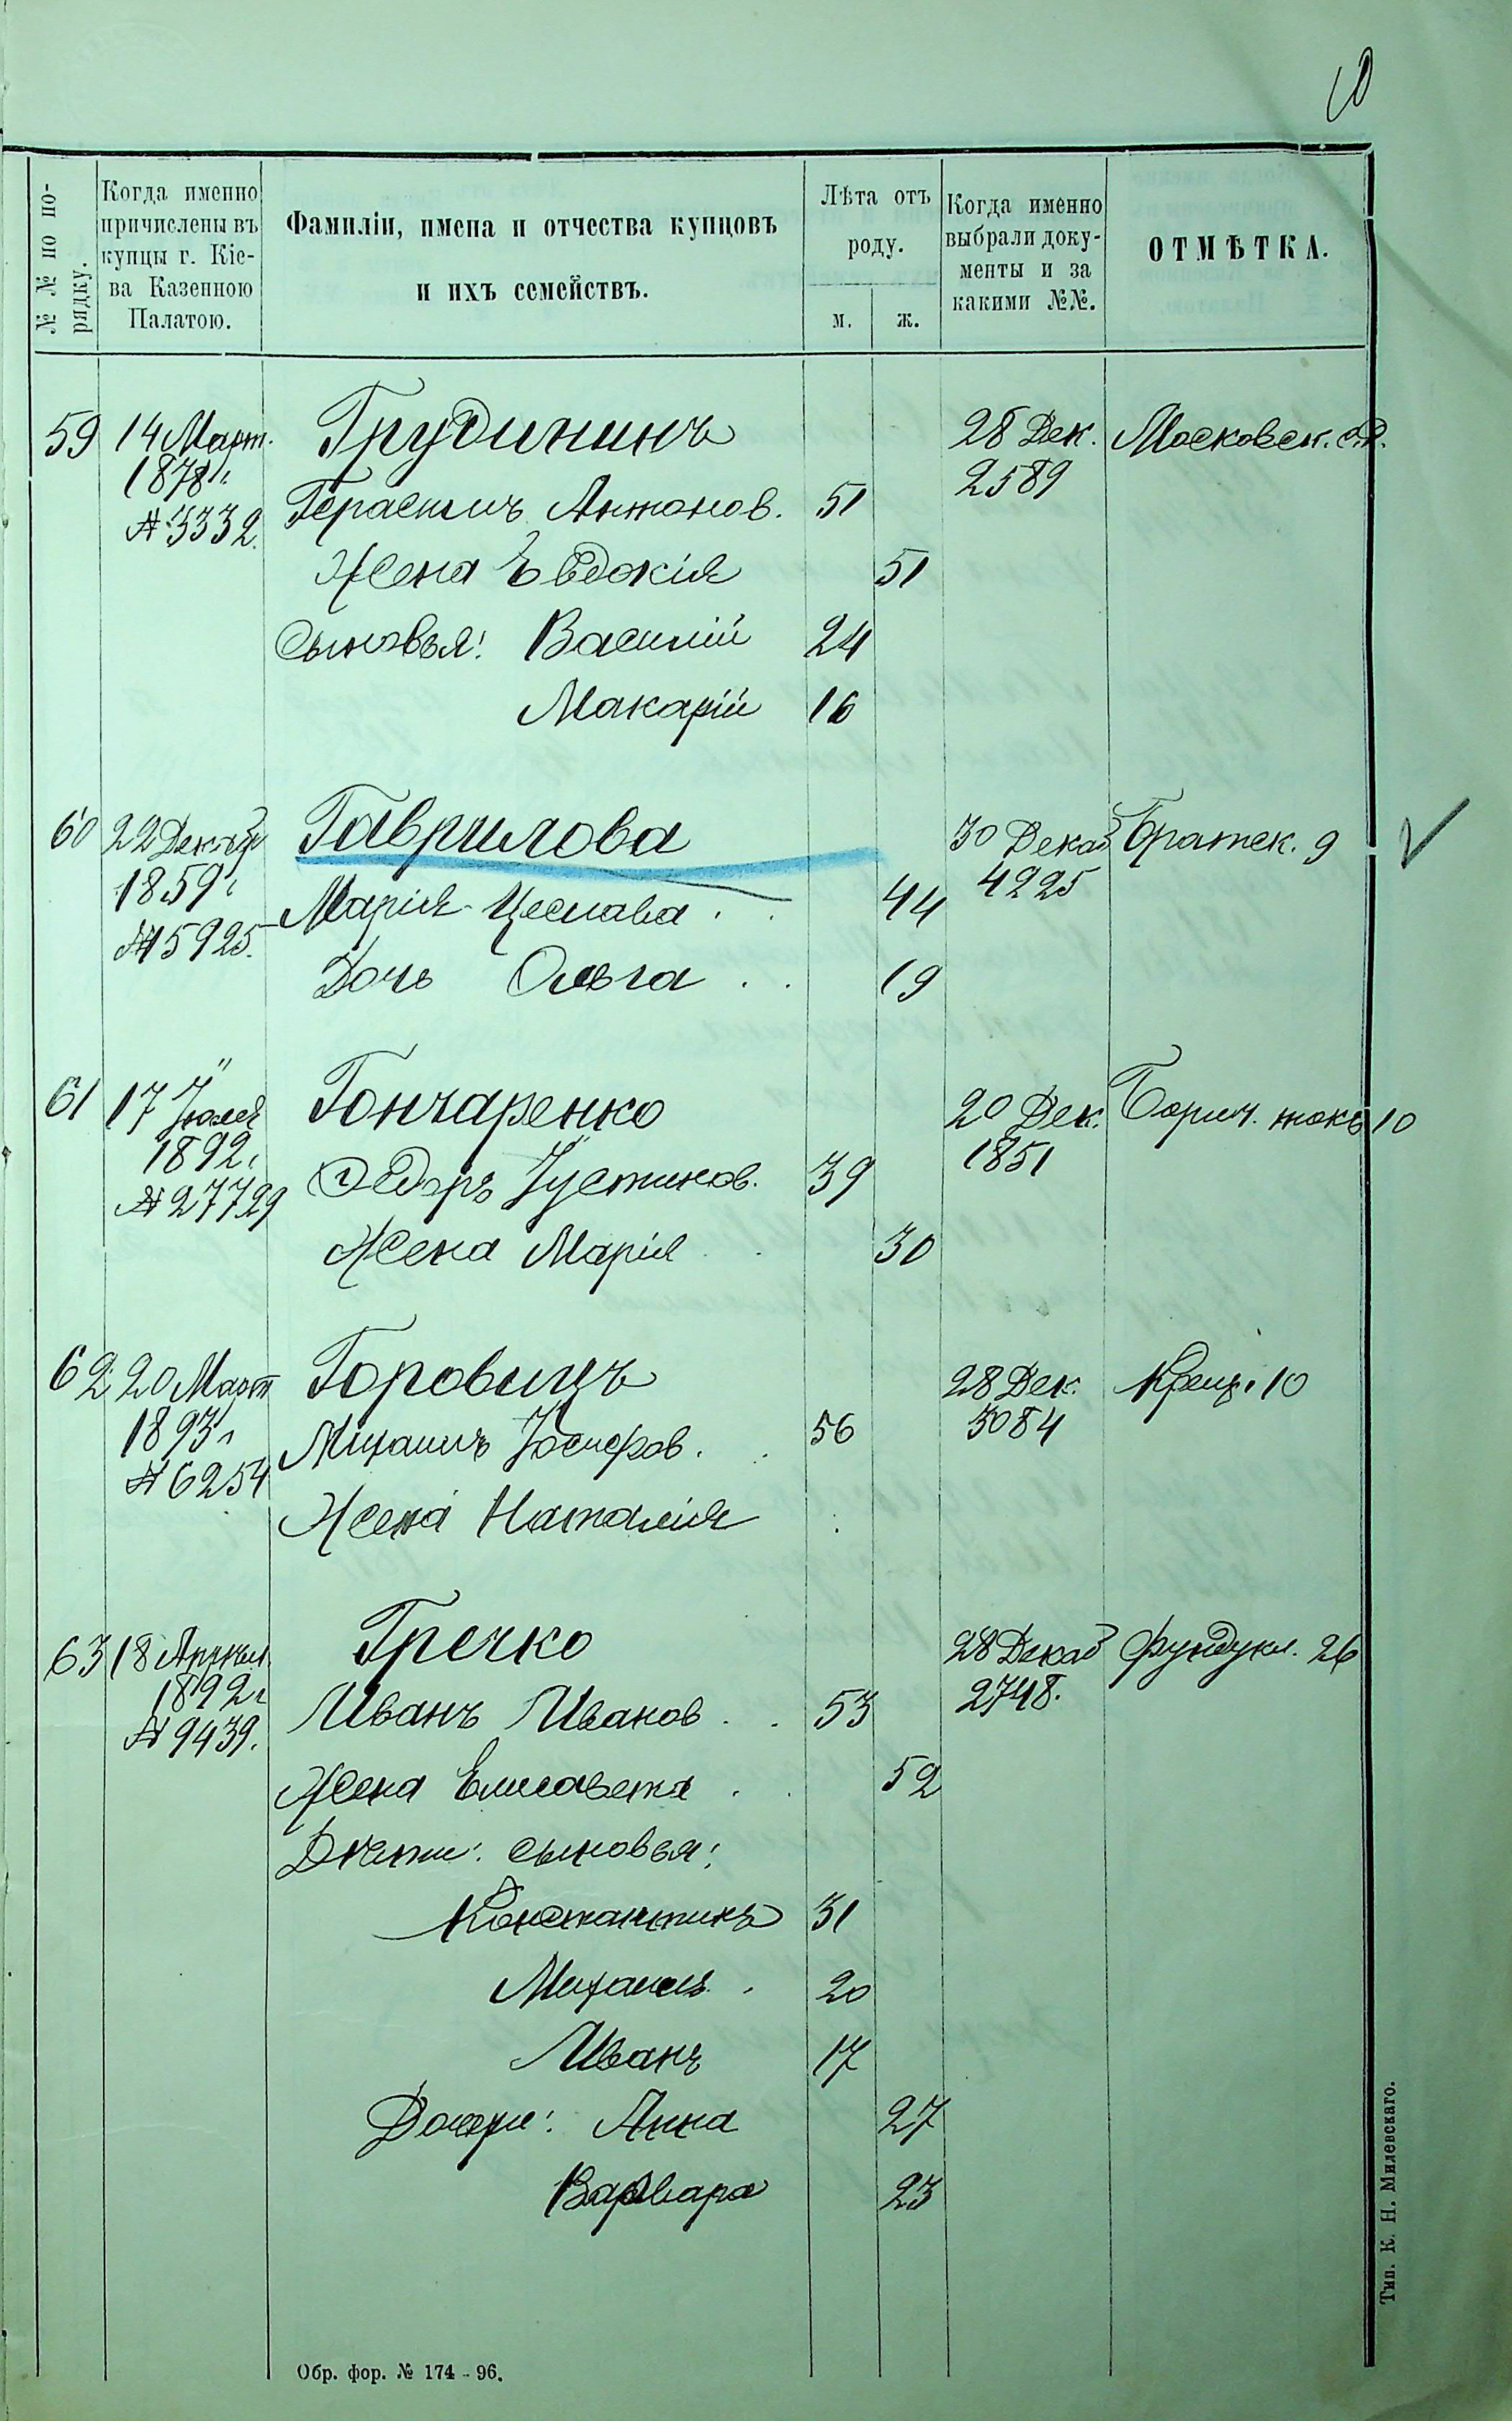 10
№ № по по-
рядку.
Когда именно
причислены въ
купцы г. Кіе-
ва Казенною
Палатою.
Фамиліи, имена и отчества купцовъ
и ихъ семействъ.
Лѣта отъ
роду.
м. ж.
Когда именно
выбрали доку-
менты и за
какими №№.
ОТМѢТКА.
59 14 Март. Грудининъ 28 Дек. Московск.
1878 г. 2589
№ 3332. Герасимъ Антонов. 51
Жена Евдокія 51
Сыновья: Василій 24
Макарій 16
60 22 Декаб Гаврилова 30 Декаб Братск. 9
1859 г. 4225
№ 15925. Марія 44
Дочь Ольга 19
61 17 Іюля Гончаренко 20 Дек. Борич. токъ 10
1892 г. 1851
№ 27729 Ѳедоръ Іустинов. 39
Жена Марія 30
62 20 Март Горовицъ 28 Дек. Крещ. 10
1893 г. 3084
№ 6254 Михаилъ Іосифов. 56
Жена Наталія
63 18 Апрѣл. Гречко 28 Декаб Фундукл. 26
1892 г. 2748.
№ 9439. Иванъ Иванов. 53
Жена Елисавета 52
Дѣти: сыновья:
Константинъ 31
Михаилъ 20
Иванъ 17
Дочери: Анна 27
Варвара 23
Обр. фор. № 174 - 96.
Тип. К. Н. Милевскаго.